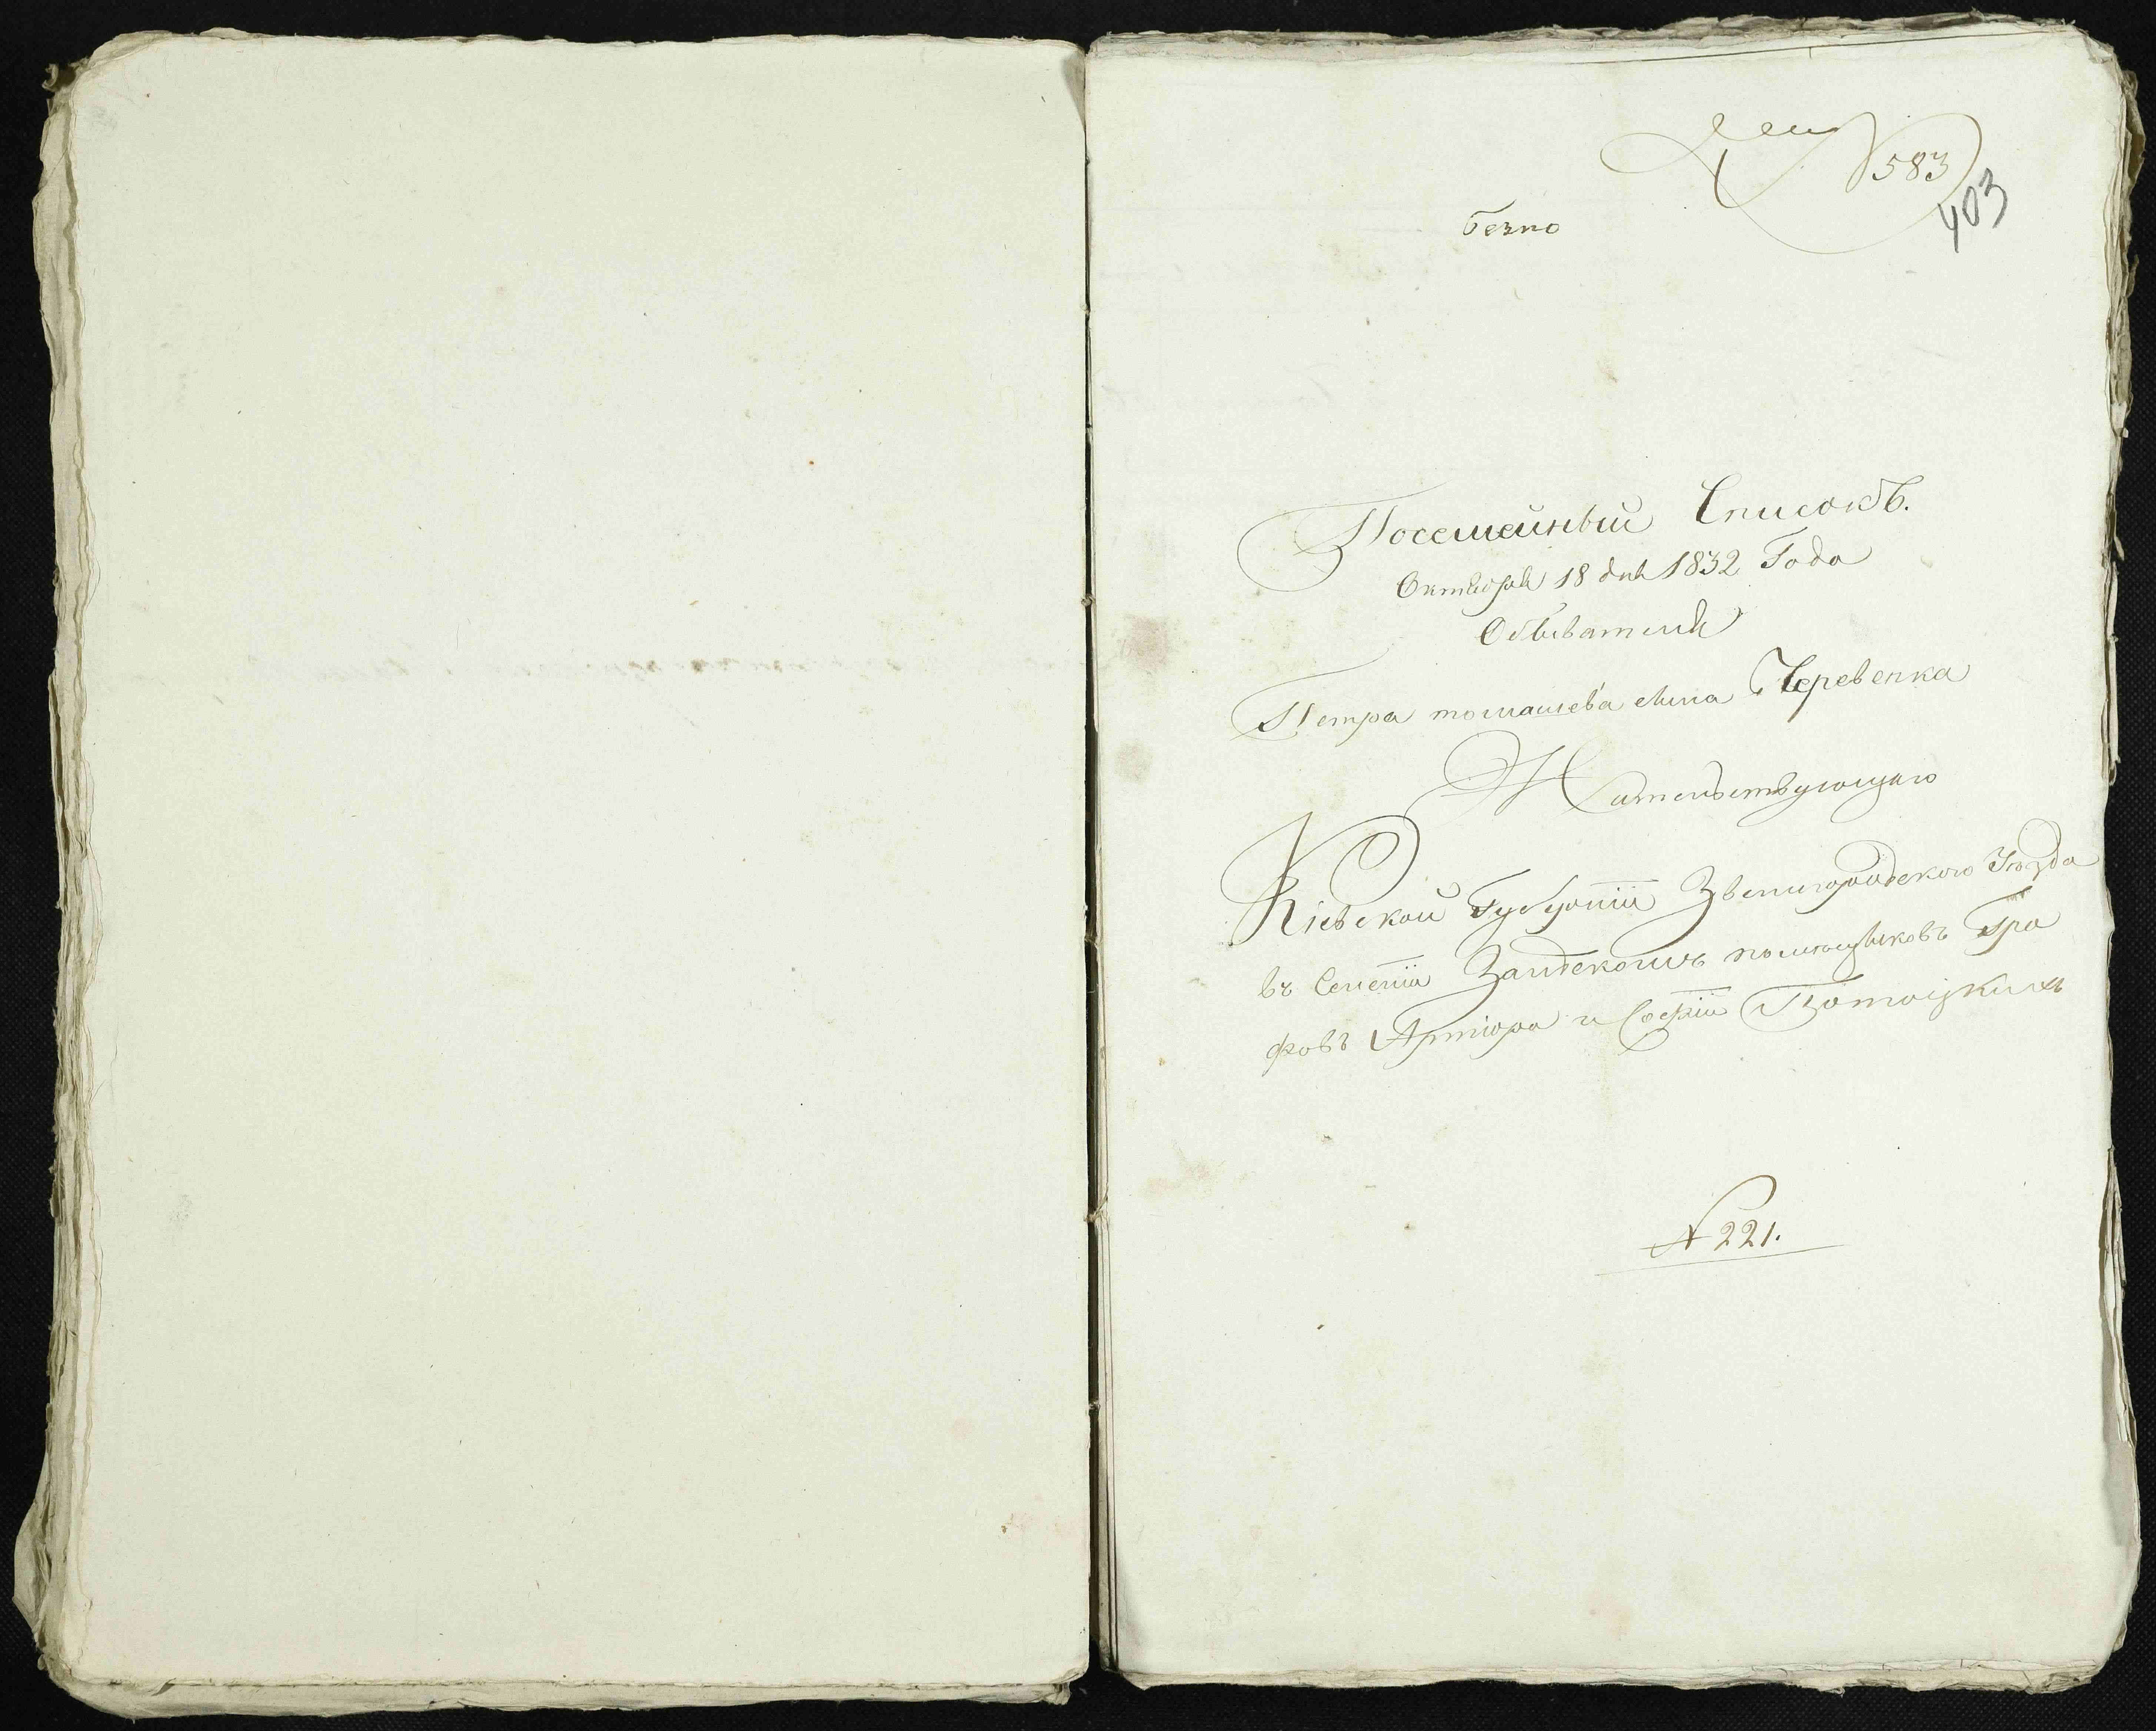 583
403
безпо
Посемейный Списокъ.
Октября 18 дня 1832 Года
Обывателя
Петра томашева сына Черевенка
Жительствующаго
Кіевской Губерніи Звенигородского Уѣзда
въ Селеніи помѣщиковъ Гра
фовъ Артюра и Софіи Потоцкихъ
№ 221.